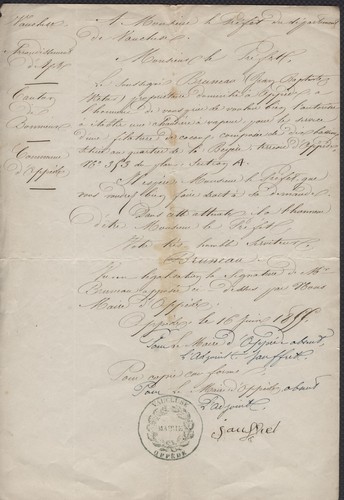 Vaucluse
Arrondissement
d'Apt
Canton
de
Bonnieux
Commune
d'Oppède
A Monsieur le Préfet du département
de Vaucluse
Monsieur le Préfet,
Le soussigné Bruneau (Jean Baptiste
propriétaire domicilié à Oppède a
l'honneur de vous prier de vouloir bien l'autoriser
à établir une chaudière à vapeur pour le service
d'une filature de cocons composée de
au quartier de la terroir d'Oppède
N° 353 du plan Section A.
Il espère Monsieur le Préfet que
vous voudrez bien faire droit à sa demande
Dans cette attente il a l'honneur
d'être Monsieur le Préfet
Votre très humble serviteur
Bruneau
Vu pour légalisation de la signature de Mr
Bruneau apposée ci dessus par Nous
Maire d'Oppède
Oppède le 16 juin
Pour le Maire d'Oppède absent
L'adjoint Jauffret
Pour copie conforme
Pour Le Maire d'Oppède absent
L'adjoint
Jauffret
VAUCLUSE
MAIRIE
OPPÈDE